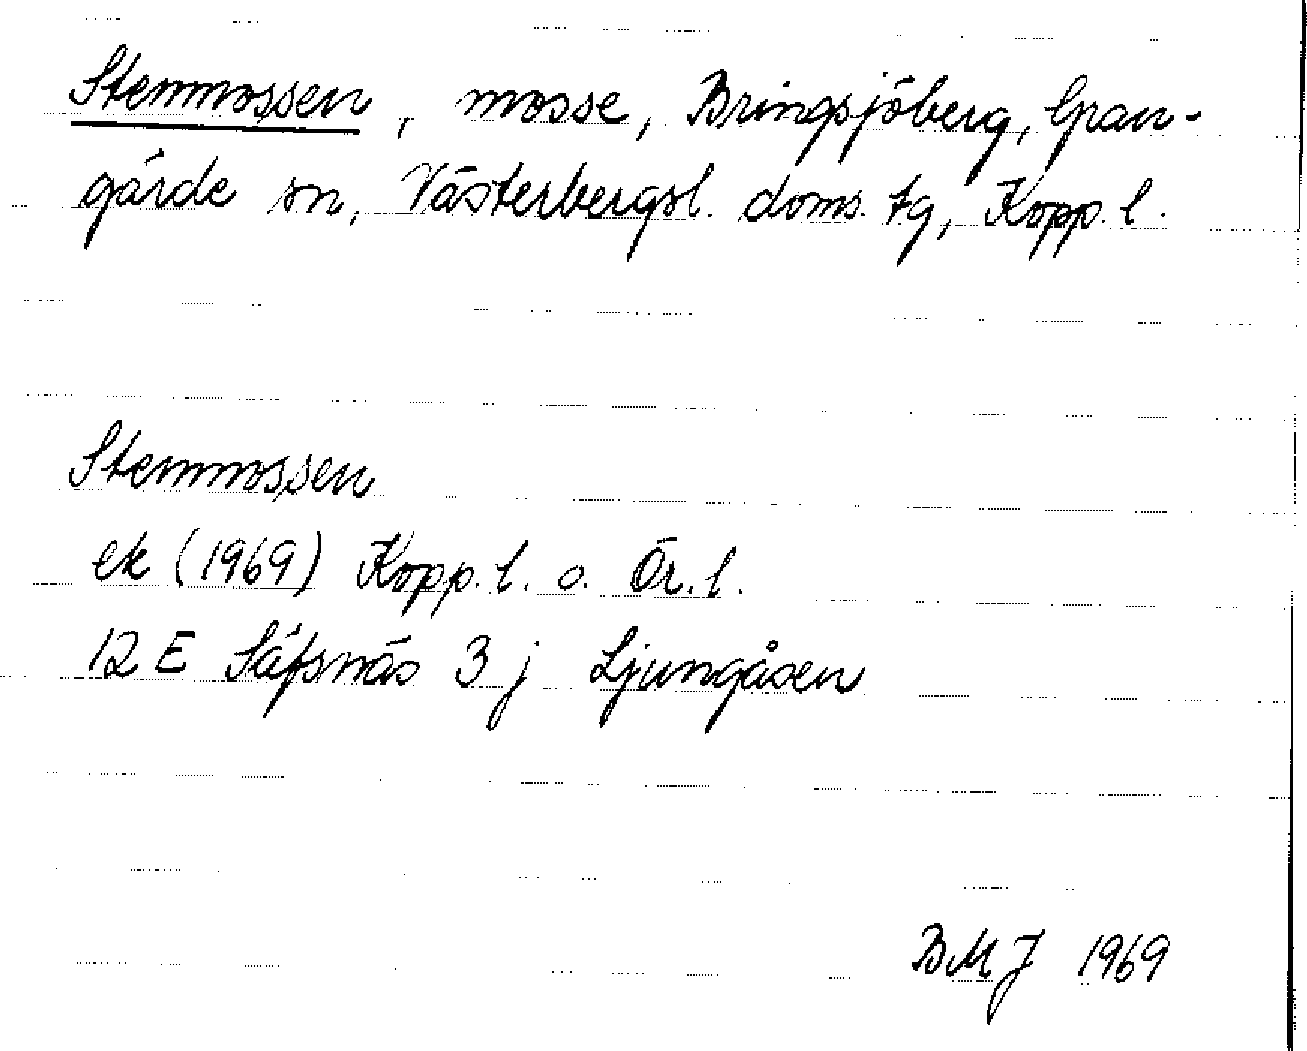 Stenmossen, mosse, Bringsjöberg, Gran-
gärde sn, Västerbergsl. doms. tg, Kopp. l.
Stenmossen
ek (1969) Kopp. l. o. Ör. l.
12 E Säfsnäs 3 j Ljungåsen
BMJ 1969